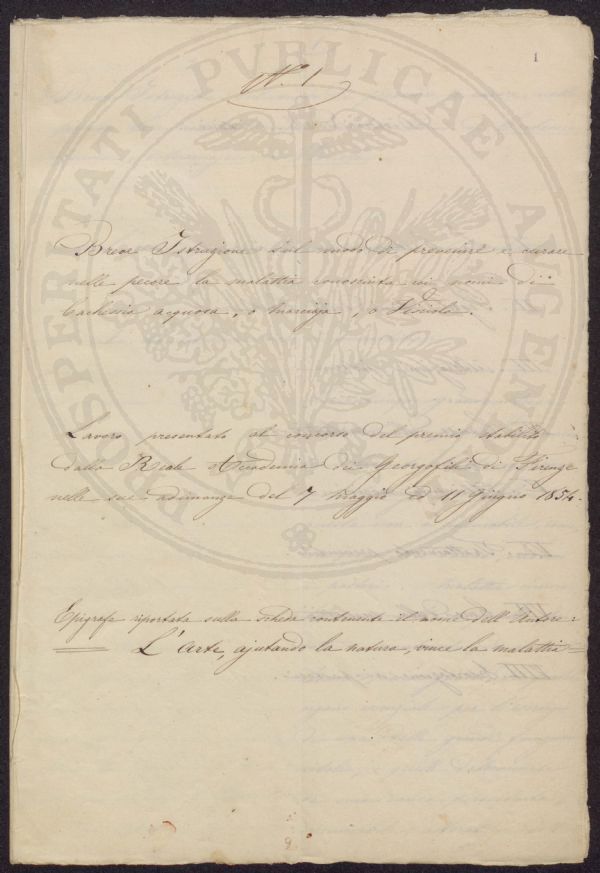 1
N.° 1
Breve Istruzione sul modo di prevenire e curare
nelle pecore la malattia conosciuta coi nomi di
Cachessia acquosa, o marciaja, o
Lavoro presentato al concorso del premio stabilito
dalla Reale Accademia dei Georgofili di Firenze
nelle sue adunanze del 7 Maggio ed 11 Giugno 1854.
Epigrafe riportata sulla scheda contenente il nome dell'Autore:
L'arte, ajutando la natura, vince la malattia
PROSPERITATI PVBLICAE AVGENDAE